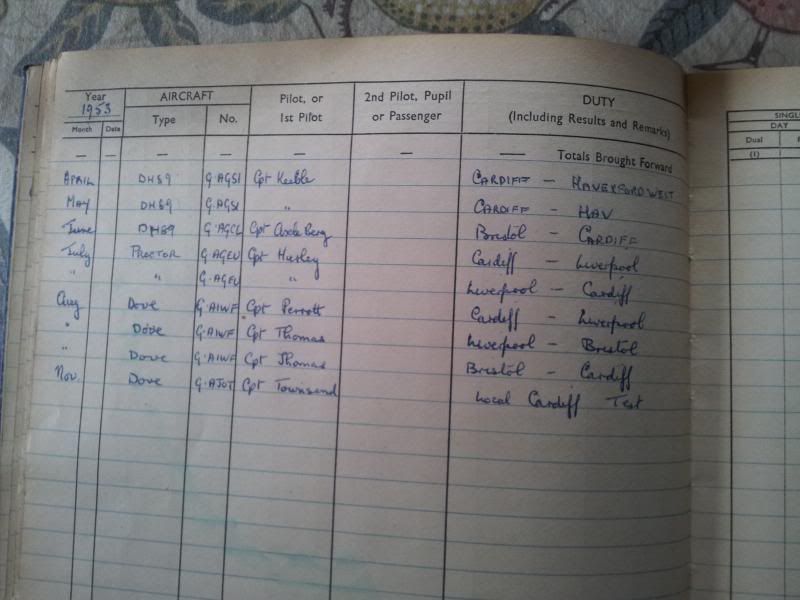 Year AIRCRAFT Pilot, or 2nd Pilot, Pupil DUTY SINGL
1953 1st Pilot or Passenger (Including Results and Remarks) DAY
Month Date Type No. Dual
— — — — — — — Totals Brought Forward (1)
APRIL DH89 G.AGSI Cpt Keeble CARDIFF — HAVERFORDWEST
MAY DH89 G.AGSI " CARDIFF — HAV
June DH89 Cpt Bristol — CARDIFF
July PROCTOR Cpt Hurley Cardiff — Liverpool
" " " Liverpool — Cardiff
Aug Dove G.AIWF Cpt Perrott Cardiff — Liverpool
" Dove G.AIWF Cpt Thomas Liverpool — Bristol
" Dove G.AIWF Cpt Thomas Bristol — Cardiff
Nov. Dove G.AJOT Cpt Townsend Local Cardiff Test